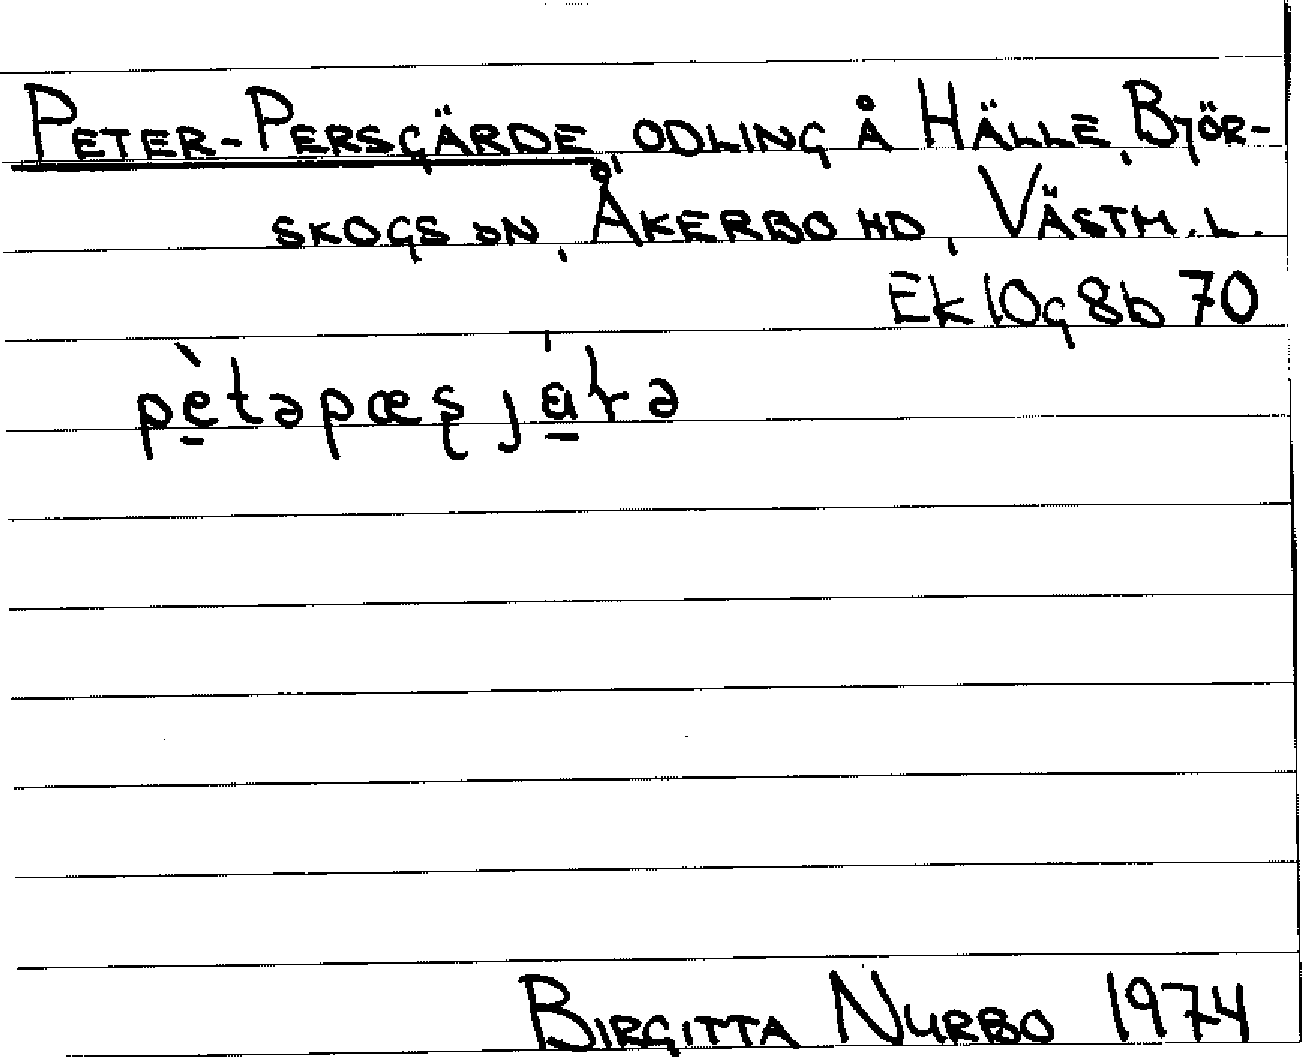 PETER-PERSGÄRDE, ODLING Å HÄLLE, BJÖR-
SKOGS SN, ÅKERBO HD, VÄSTM.L.
Ek 10g 8b 70
BIRGITTA NURBO 1974